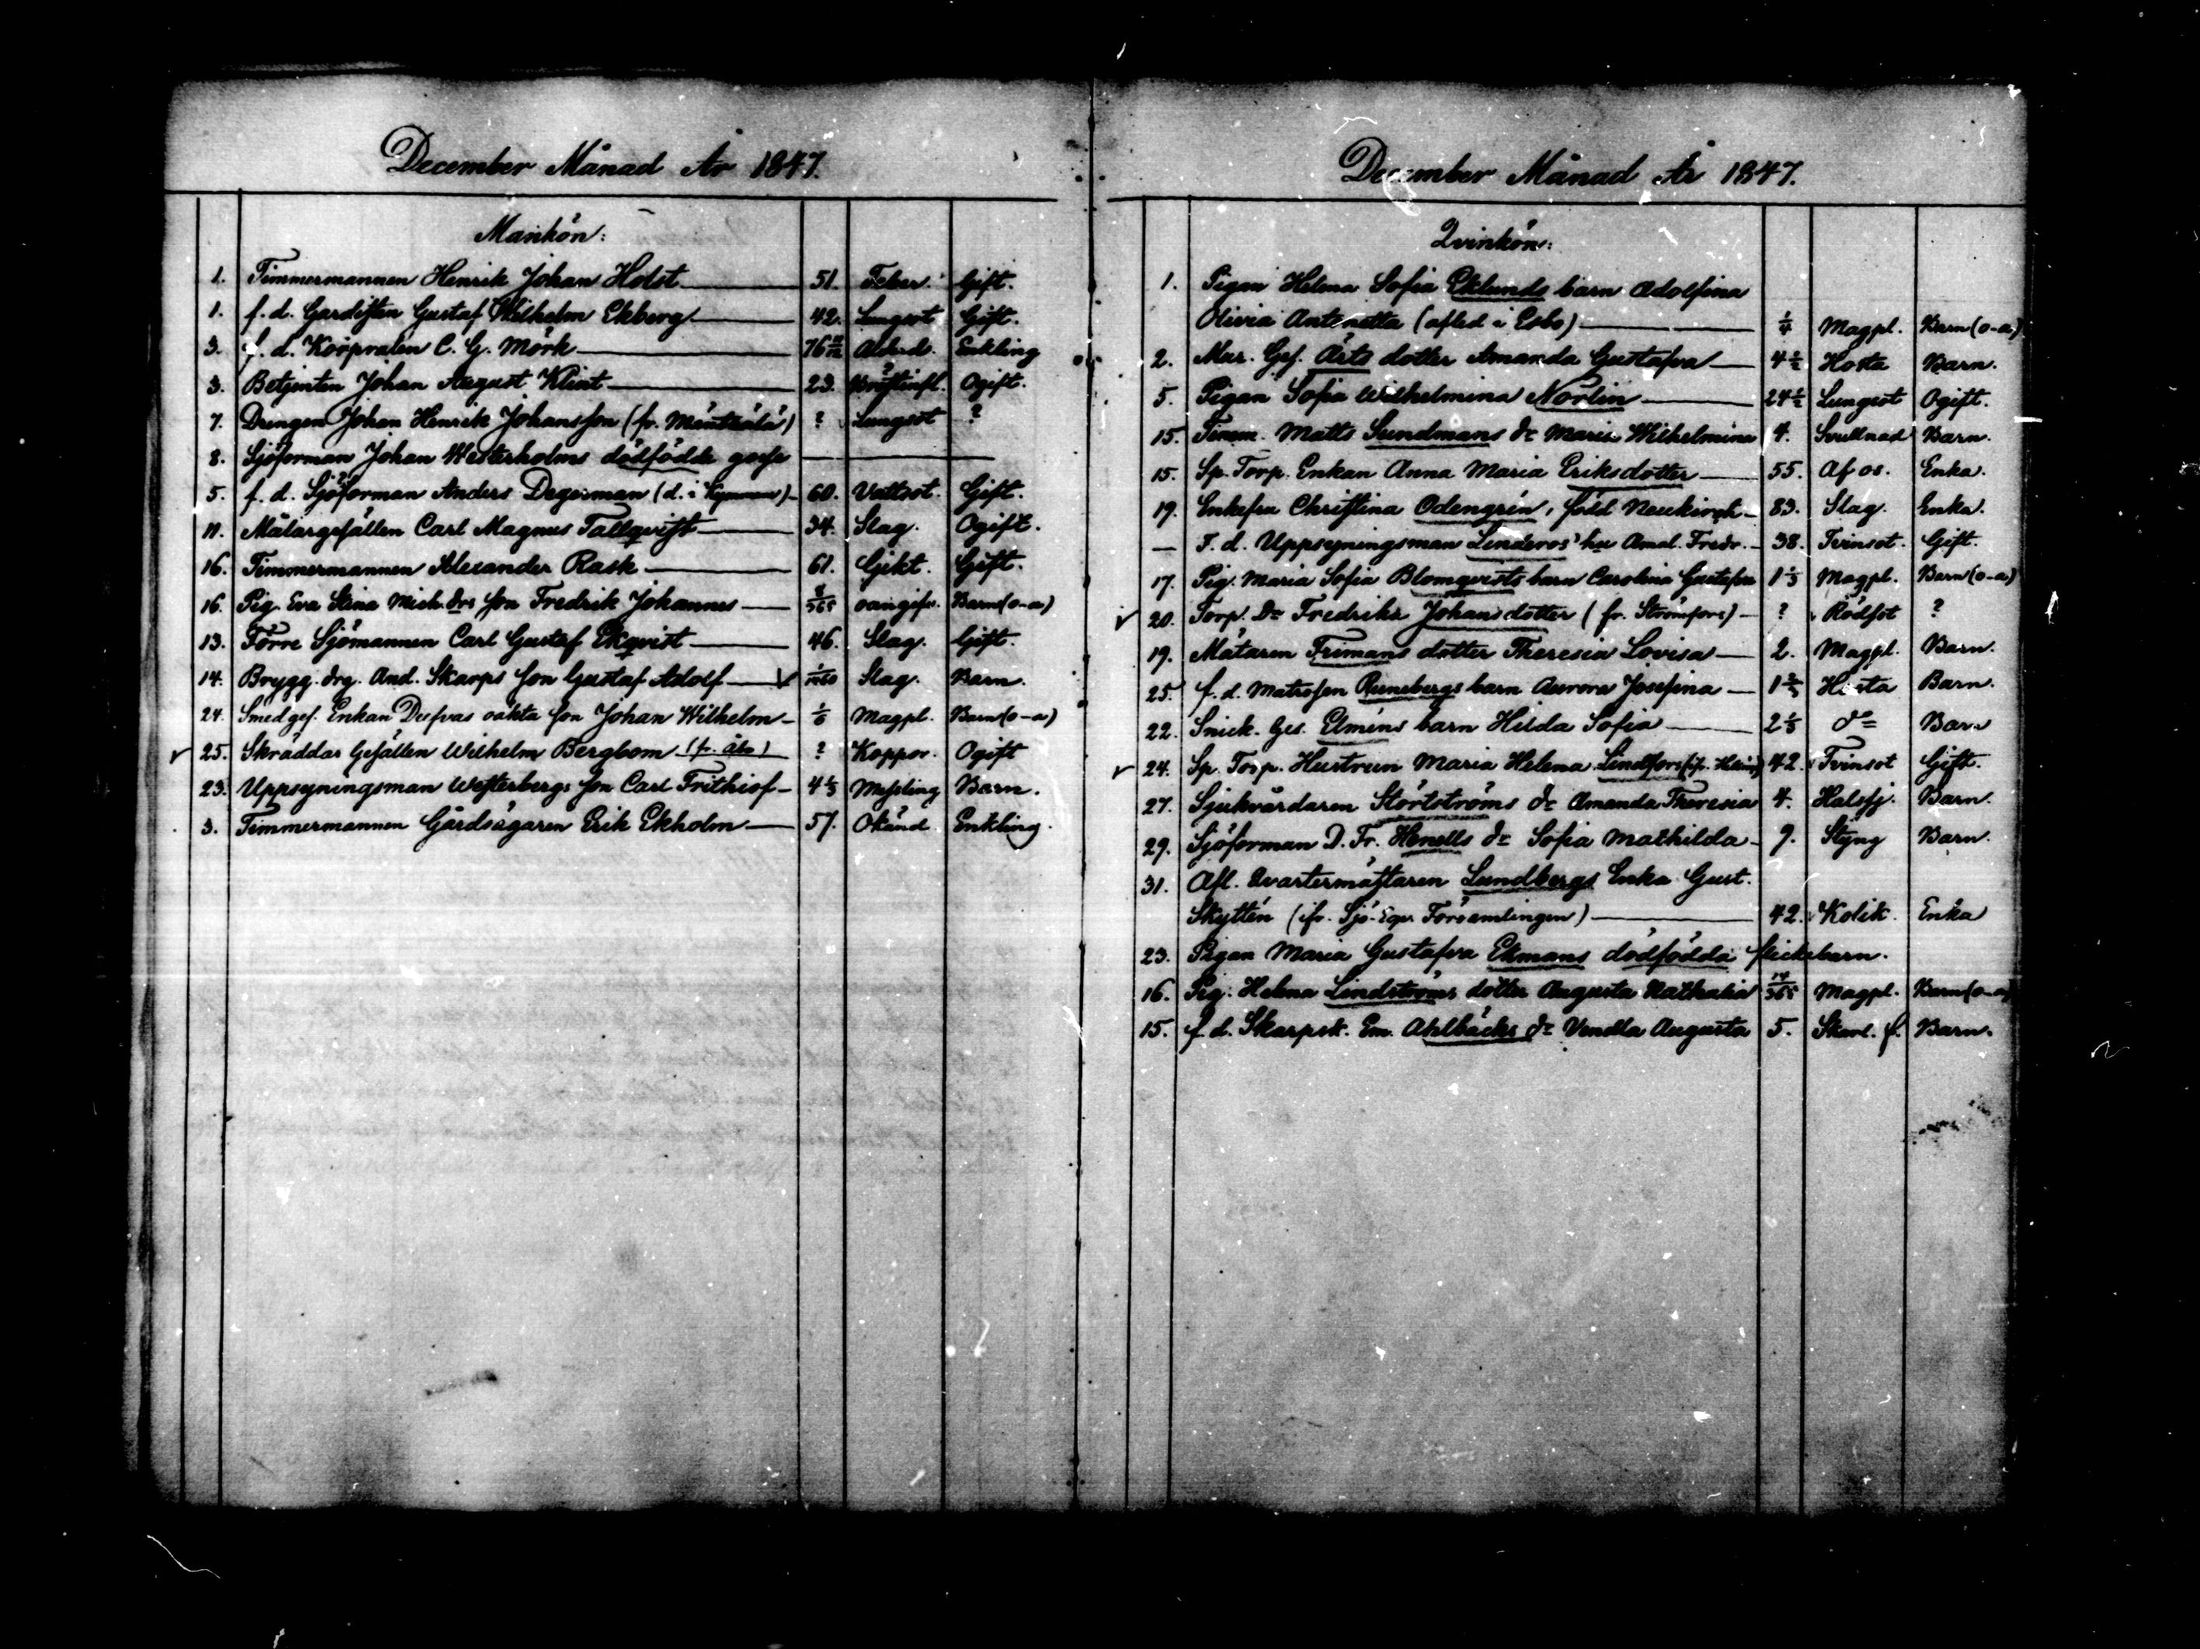 December Månad År 1847.
Mankön:
1. Timmermannen Henrik Johan Holst 51. Feber. Gift.
1. f. d. Gardisten Gustaf Wilhelm Ekberg 42. Lungsot Gift.
3. f. d. Korpralen C. G. Mörk 76 Ålderd. Enkling
3. Betjenten Johan August Klint 23. Bröstinfl. Ogift.
7. Drengen Johan Henrik Johansson (fr. Mäntsälä) ? Lungsot ?
8. Sjöforman Johan Westerholms dödfödde gosse
5. f. d. Sjöforman Anders Degerman (d. i Kymmene) 60. Vattsot. Gift.
11. Målargesällen Carl Magnus Tallqvist 34. Slag. Ogift.
16. Timmermannen Alexander Rask 61. Gikt. Gift.
16. Pig. Eva Stina Mich. drs son Fredrik Johannes 8/365 oangifv. Barn (o-ä)
13. Förre Sjömannen Carl Gustaf Ekqvist 46. Slag. Gift.
14. Brygg. drg. And. Skarps son Gustaf Adolf Slag. Barn.
24. Smedges. Enkan oäkta son Johan Wilhelm 1/6 Magpl. Barn (o-ä)
✓ 25. Skräddar Gesällen Wilhelm Bergbom (fr. Åbo) ? Koppor. Ogift
23. Uppsyningsman Westerbergs son Carl Frithiof 4 1/3 Messling Barn.
3. Timmermannen Gårdsägaren Erik Ekholm 57. Okänd Enkling.
December Månad År 1847.
Qvinkön:
1. Pigan Helena Sofia Eklunds barn Adolfina
Olivia Antonetta (afled i Esbo) 1/4 Magpl. Barn (o-ä)
2. Mur. Ges. Ärts dotter Amanda Gustafva 4 1/2 Hosta Barn.
5. Pigan Sofia Wilhelmina Norlin 24 1/2 Lungsot Ogift.
15. Timm. Matts Sundmans dr Maria Wilhelmina 4. Svullnad Barn.
15. Sp. Torp. Enkan Anna Maria Eriksdotter 55. Af os. Enka.
19. Enkefru Christina Odengrén, född Neukirch 83. Slag. Enka.
— F. d. Uppsyningsman Linderos' hu Amal. Fredr. 38. Tvinsot. Gift.
17. Pig. Maria Sofia Blomqvists barn Carolina Gustafva 1 1/3 Magpl. Barn (o-ä)
✓ 20. Torp. Dr Fredrika Johansdotter (fr. Strömfors) ? Rödsot ?
19. Mätaren Frimans dotter Theresia Lovisa 2. Magpl. Barn.
25. f. d. Matrosen Runebergs barn Aurora Josefina 1 2/3 Hosta Barn.
22. Snick. Ges. Elméns barn Hilda Sofia 2 1/3 do Barn
✓ 24. Sp. Torp. Hustrun Maria Helena Lindfors 42. Tvinsot Gift.
27. Sjukvårdaren Störtströms dr Amanda Theresia 4. Halssj. Barn.
29. Sjöforman D. Fr. Henells dr Sofia Mathilda 9. Styng Barn.
31. Afl. Qvartermästaren Lundbergs Enka Gust.
Skyttén (ifr. Sjö-Eqv. Församlingen) 42. Kolik. Enka
23. Pigan Maria Gustafva Ekmans dödfödda flickebarn.
16. Pig. Helena Lindströms dotter Augusta Nathalia 14/365 Magpl. Barn (o-ä)
15. f. d. Skarpsk. Em. Ahlbäcks dr Vendla Augusta 5. Skarl. f. Barn.